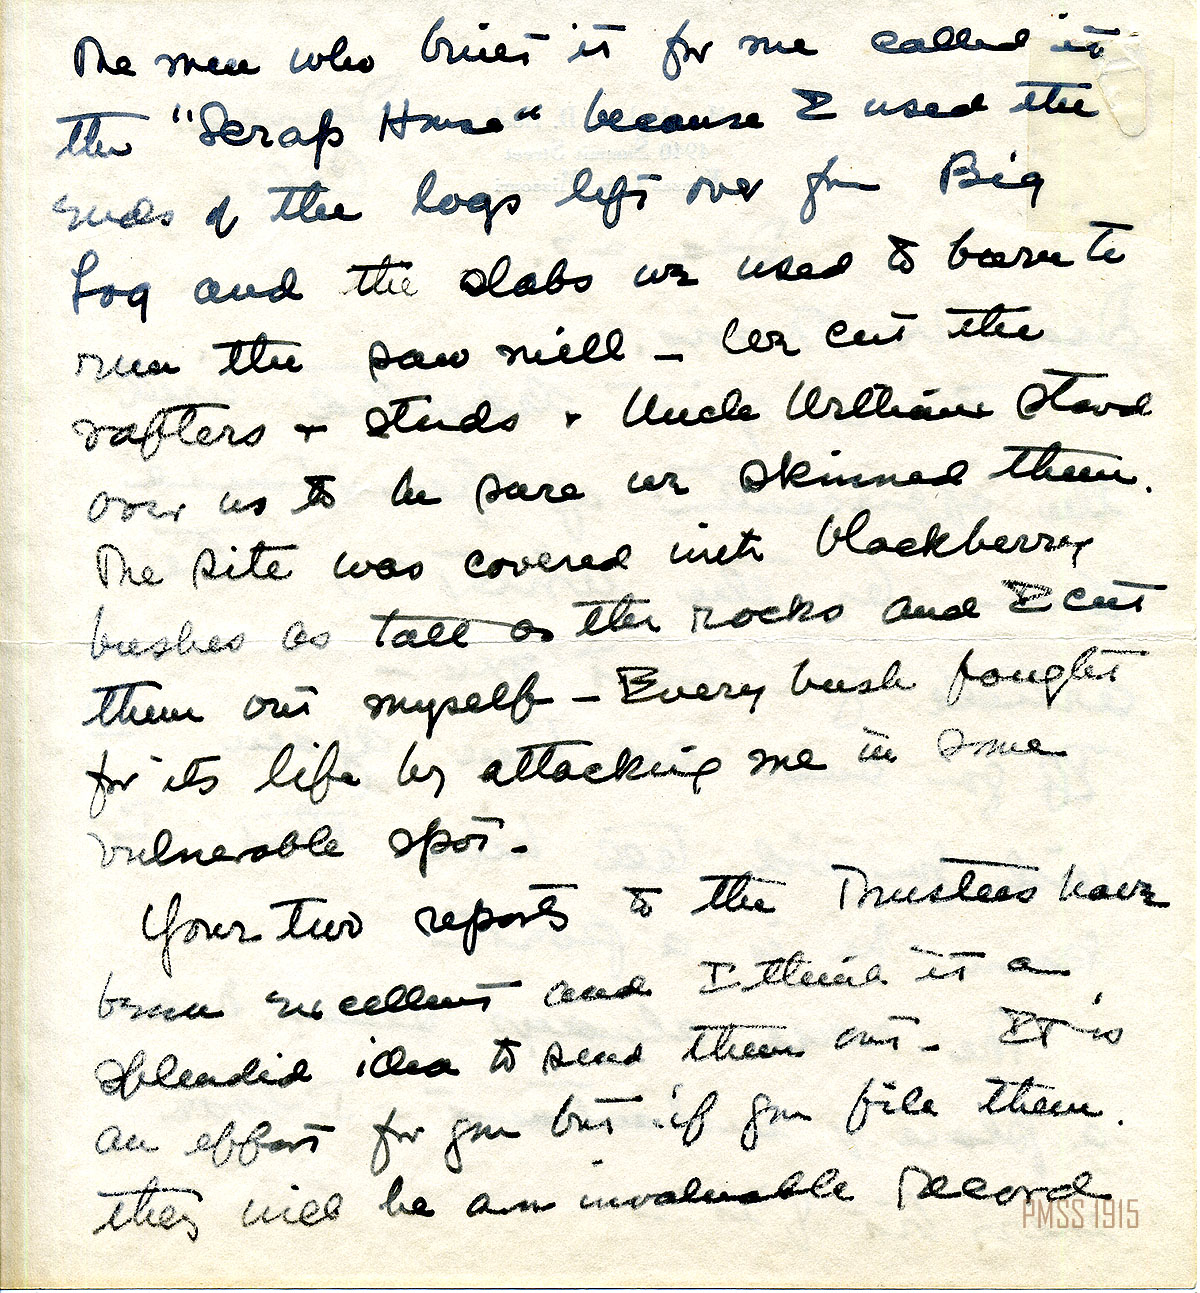 The men who built it for me called it
the "Scrap House" because I used the
ends of the logs left over from Big
Log and the slabs we used to burn to
run the saw mill – We cut the
rafters + studs + Uncle William stood
over us to be sure we skinned them.
The site was covered with blackberry
bushes as tall as the rocks and I cut
them out myself – Every bush fought
for its life by attacking me in some
vulnerable spot –
Your two reports to the Trustees have
been excellent and I think it a
splendid idea to send them out – It is
an effort for you but if you file them
they will be an invaluable record
PMSS 1915